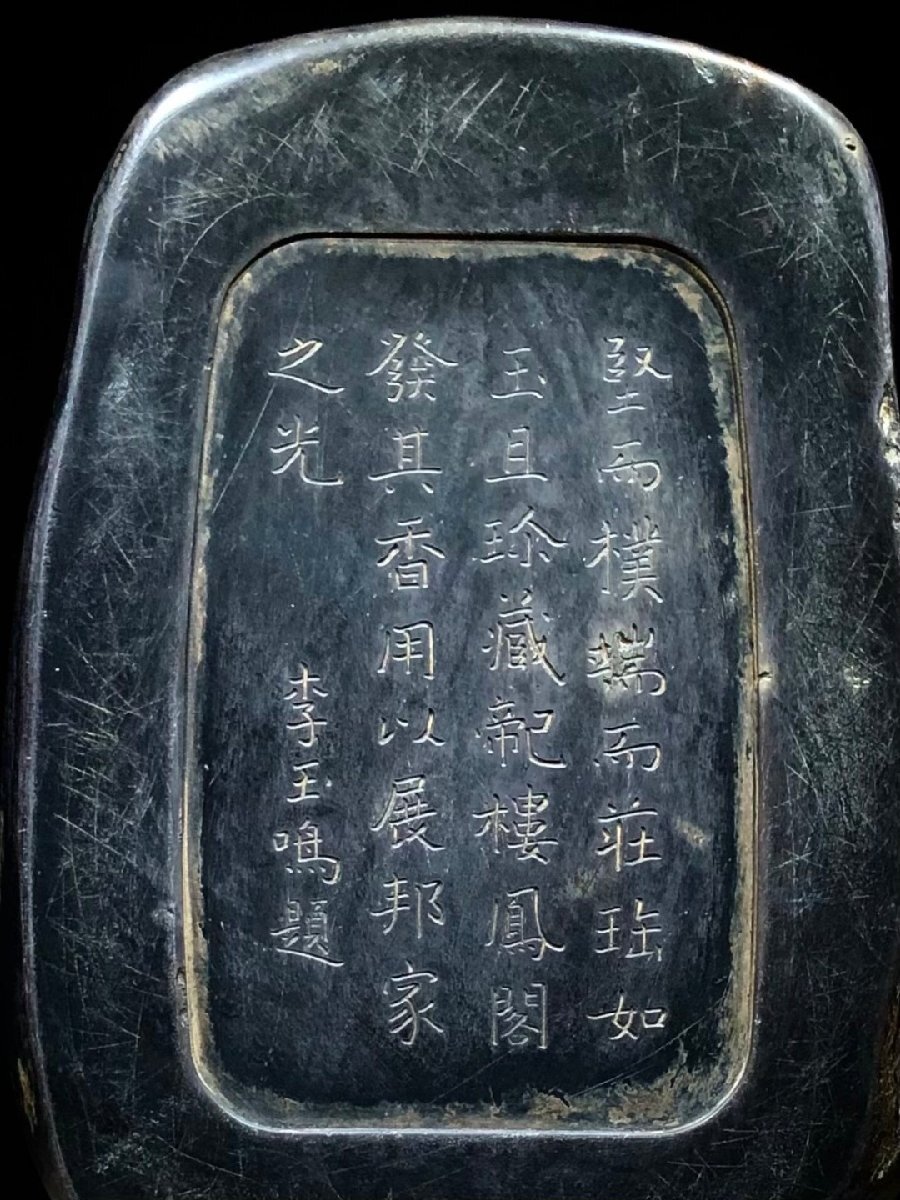 堅而樸端而莊珤如
玉且珍藏龍樓鳳閣
發其香用以展邦家
之光
李玉鳴題